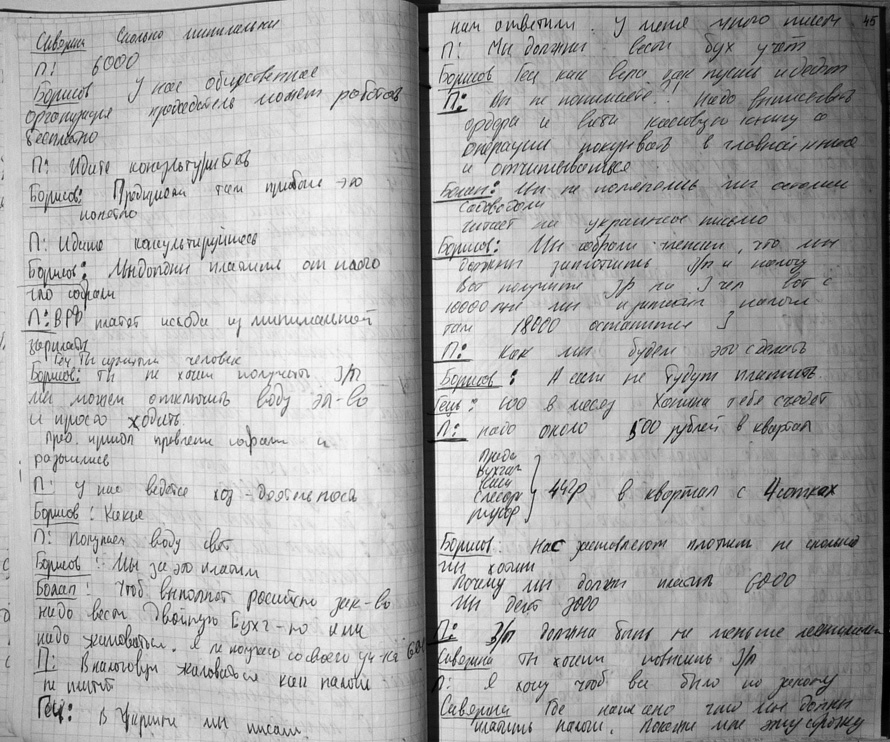 Северина Сколько минималка
П: 6000
Борисов У нас общественное
организация председатель может работать
бесплатно
П: Идите консультируйтесь
Борисов: Продизвол там прибыле это
понятно
П: Идите консультируйтесь
Борисов: Мы должны платить от того
что собрали
П: В РФ платят исходя из минимальной
зарплаты
Гец Ты
человек
Борисов: Ты не хочеш получать З/п
мы можем отключить воду эл-во
и просто ходить.
и
разошлись
П: У нас ведется хоз-деятельность
Борисов: Какая
П: Покупаем воду свет
Борисов: Мы за это платим
Болан: Чтоб выполнят российско зак-во
надо вести двойную Бухг-ю или
надо жаловаться. Я не получаю со своего уч-ка
П: В налоговую жаловаться как налоги
не платят
Гец: В Украине мы писали
нам ответили. У меня много писем
45
П: Мы должны вести бух учёт
Борисов Гец как вера, как пусть и дают
П: Вы не понимаете?! Надо выписывать
ордера и вети кассовую книгу а
операции показывать в главной книге
и отчитываться
Болан: Мы не поменялись мы остались
садоводами
читает на украинское письмо
Борисов: Мы собрали членки, что мы
должны заплотить З/п и налогу
Вот получите З/п на 3 чел Вот с
10000 грн мы налоги
там 18000 останится 3
П: Как мы будем это сделать
Борисов: А если не будут платить.
Гец: 100 в месяц Хотина тебе съедет
П: надо около 500 рублей в квартал
Предс
Бухгал
касси
слесарь
мусор
442р в квартал с 4 сотках
Борисов: Нас заставляют платит не сколько
мы хотим
Почему мы должн платит 6000
Мы дает 2000
П: З/п должна быть не меньше
Северина Ты хочеш повысить З/п
П: Я хочу чтоб все было по закону
Северина Где написано что мы должн
платить налоги. Покажи мне эту строчку